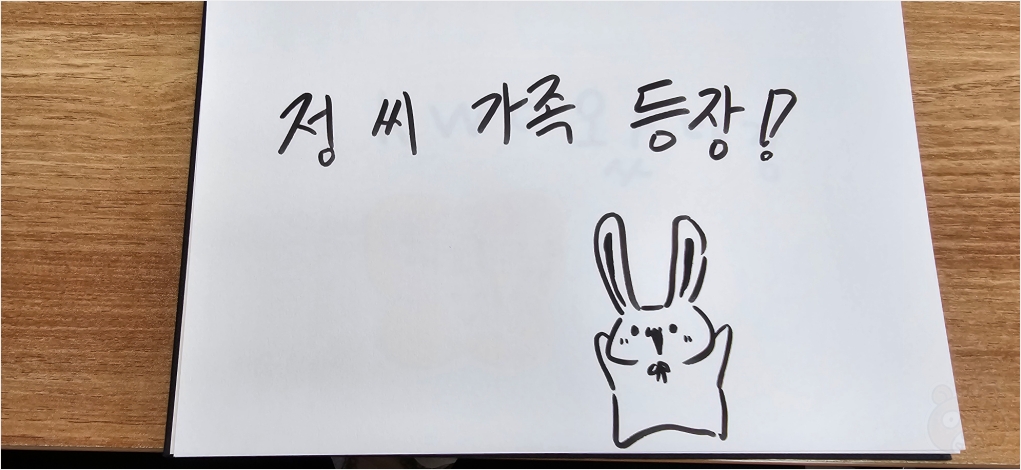 정 씨 가족 등장!